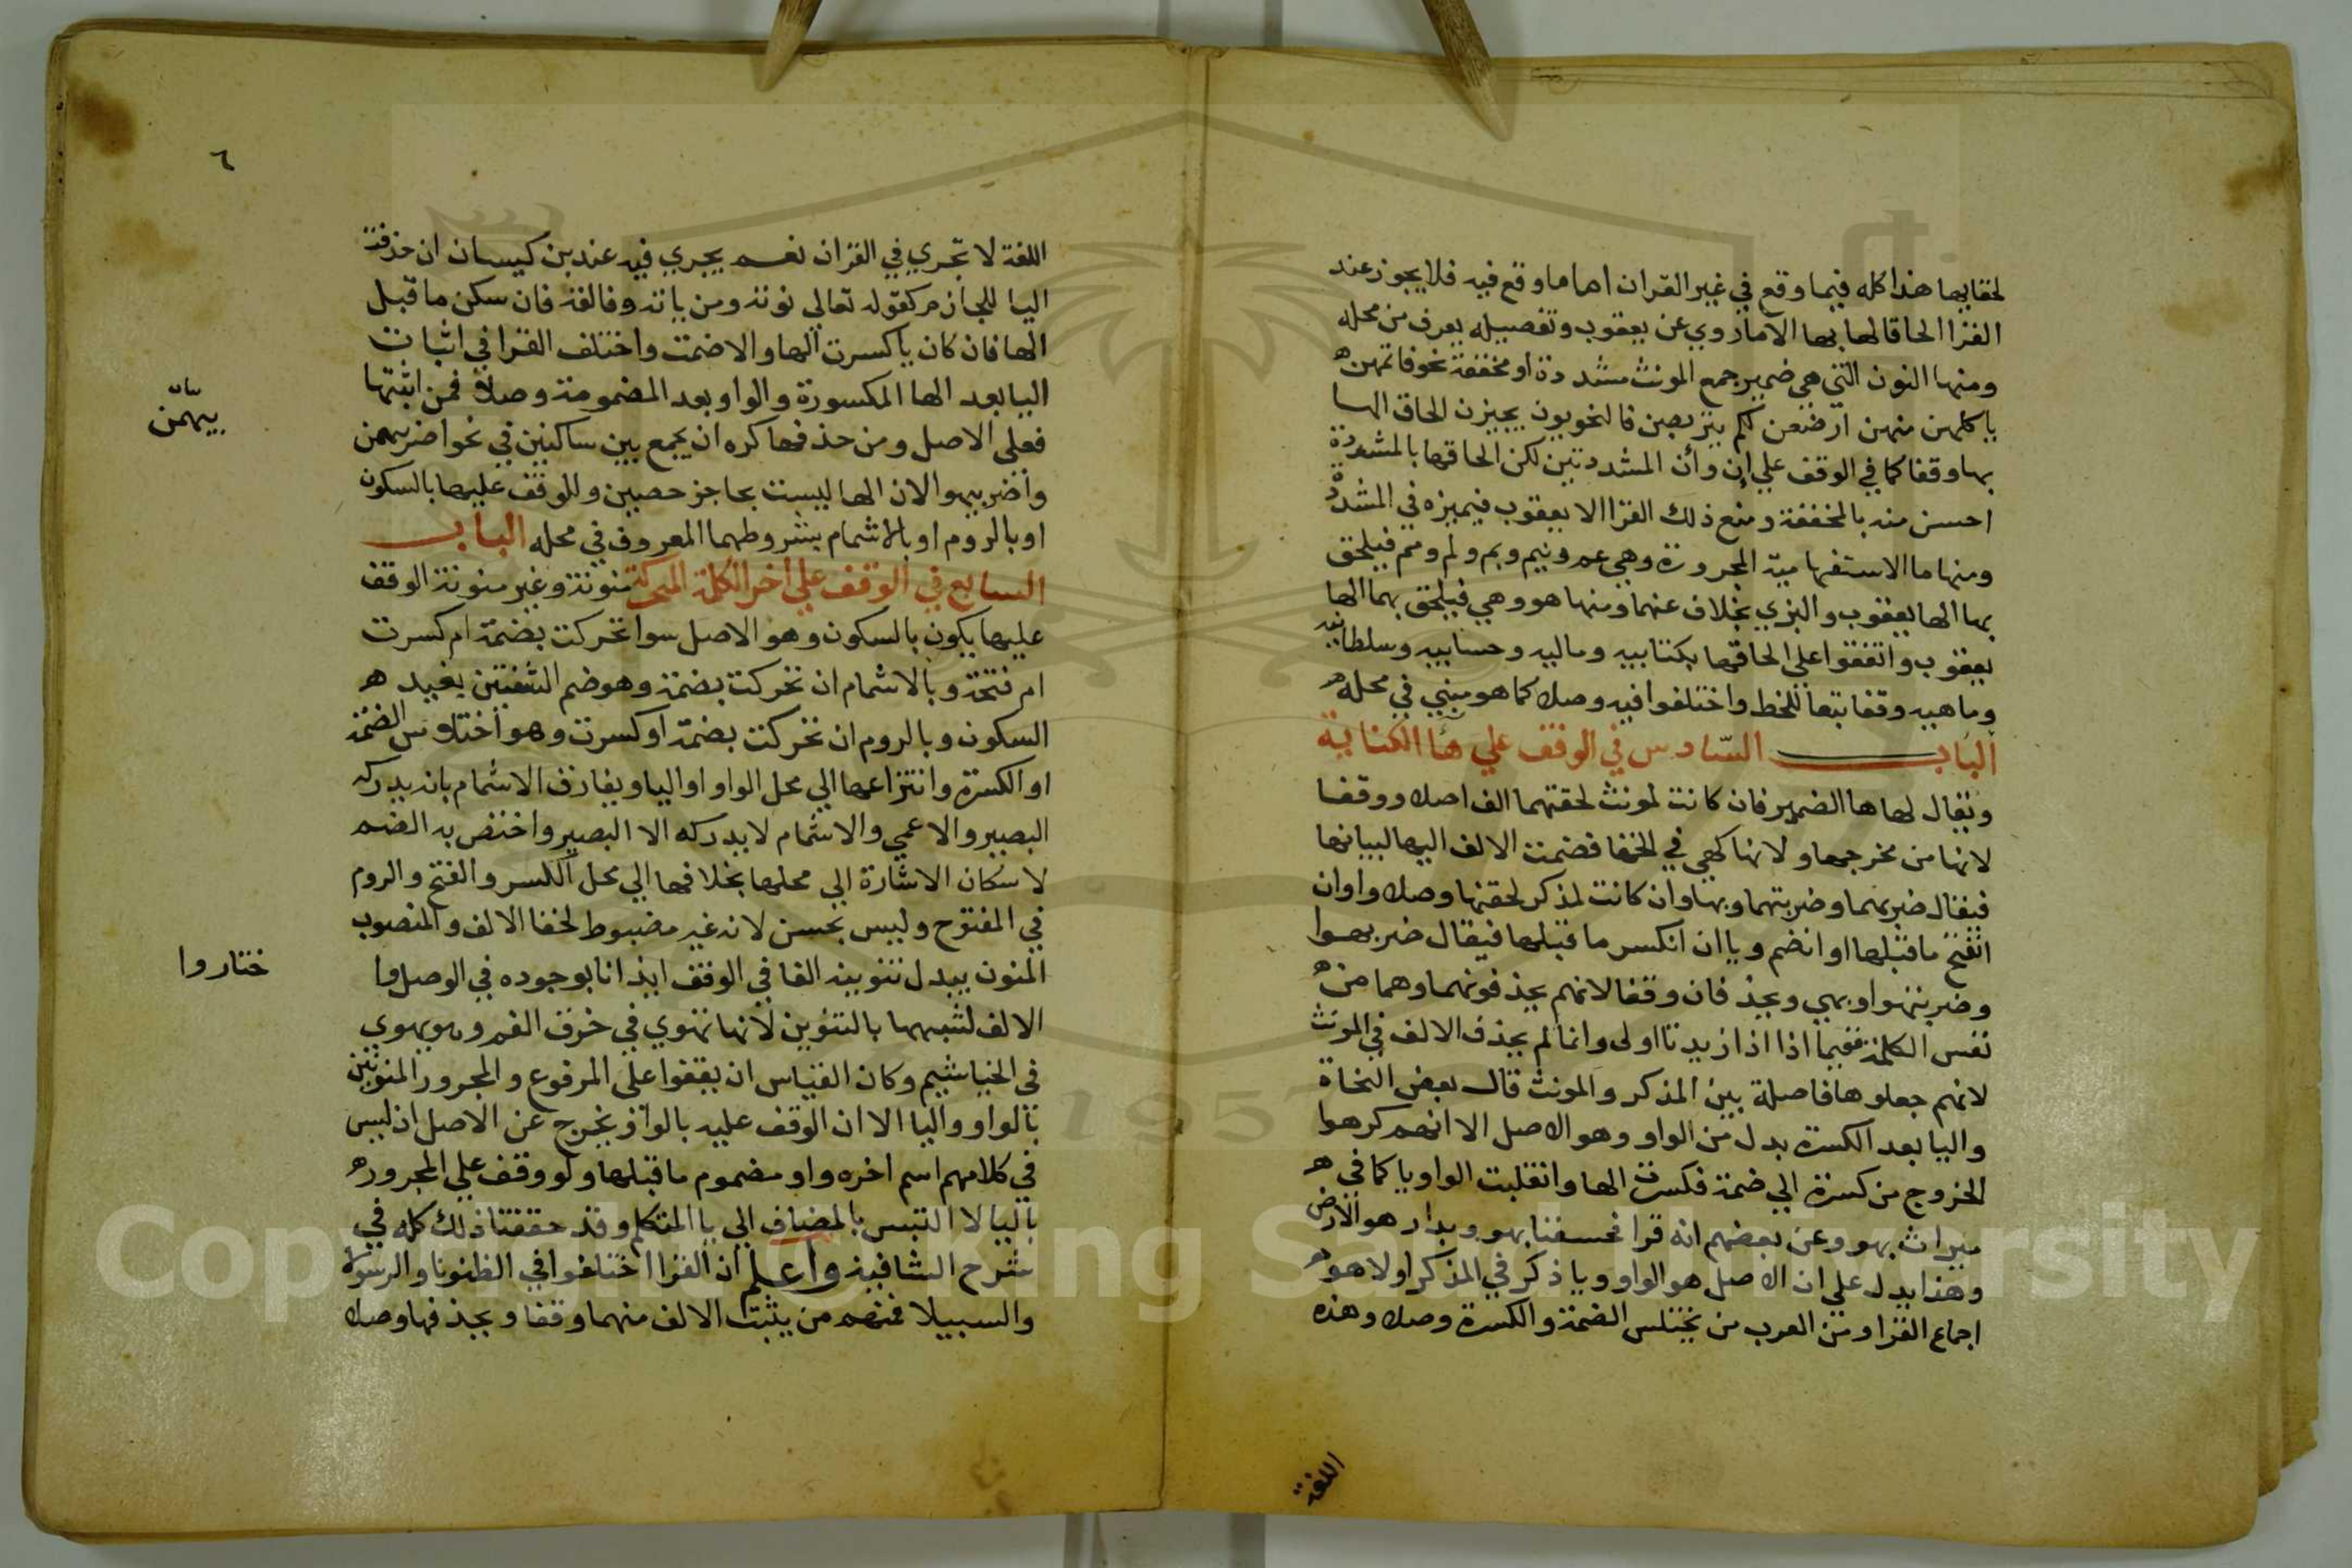 لخفايها هذا كله فيما وقع في غير القران اما ما وقع فيه فلا يجوز عند
القرا الحاقالها بها الا ما روي عن يعقوب وتفصيله يعرف من محله
ومنها النون التي هي ضمير جمع المونث مشددة او مخففة نحو فاتمهن
يا كلهن منهن ارضعن لكم يتربصن فالنحويون يجيزن الحاق الها
بها وقفا كما في الوقف علي إن وأن المشددتين لكن الحاقها بالمشددة
احسن منه بالمخففة ومنع ذلك القرا الا يعقوب فيميزه في المشددة
ومنها ما الاستفهامية المجرورة وهي عم وفيم وبم ولم ومم فيلحق
بها الها يعقوب والبزي بخلاف عنهما ومنها هو وهي فيلحق بهما الها
يعقوب واتفقوا علي الحاقها بكتابيه وماليه وحسابيه وسلطانيه
وماهيه وقفا تبعا للخط واختلفوا فيه وصلا كما هو مبني في محله
الباب السادس في الوقف علي ها الكناية
ويقال لها ها الضمير فان كانت لمونث لحقتهما الف اصلا ووقفا
لانها من مخرجها ولانها كهي في الخفا فضمت الالف اليها لبيانها
فيقال ضربهما وضربتهما وبها وان كانت لمذكر لحقتها وصلا واو ان
انفتح ما قبلها او انضم ويا ان انكسر ما قبلها فيقال ضربهوا
وضربتهوا وبهي ويحذفان وقفا لانهم يحذفونهما وهما من
نفس الكلمة ففيما اذا اذا زيدتا اولى وانما لم يحذف الالف في المونث
لانهم جعلوها فاصلة بين المذكر والمونث قال بعض النحاة
واليا بعد الكسرة بدل من الواو وهو الاصل الا انهم كرهوا
الخروج من كسرة الي ضمة فكسرت الها وانقلبت الواو يا كما في
ميراث بهو وعن بعضهم انه قرا فخسفنا بهو وبدار هو الارض
وهذا يدل علي ان الاصل هو الواو ويا ذكر في المذكر اولا هو
اجماع القرا ومن العرب من يختلس الضمة والكسرة وصلا وهذه
اللغة
٦
اللغة لا تجري في القران نعم يجري فيه عند بن كيسان ان حذفت
اليا للجازم كقوله تعالي نوته ومن ياته وفالقه فان سكن ما قبل
الها فان كان يا كسرت الها والا ضمت واختلف القرا في اثبات
اليا بعد الها المكسورة والواو بعد المضمومة وصلا فمن اثبتها
فعلى الاصل ومن حذفها كره ان يجمع بين ساكنين في نحو اضربهمن
واضربيهوا لان الها ليست بحاجز حصين وللوقف عليها بالسكون
او بالروم او بالاشمام بشروطهما المعروف في محله الباب
السابع في الوقف علي اخر الكلمة المتحركة منونة وغير منونة الوقف
عليها يكون بالسكون وهو الاصل سوا تحركت بضمة ام كسرت
ام فتحة وبالاشمام ان تحركت بضمة وهو ضم الشفتين بعيد
السكون وبالروم ان تحركت بضمة او كسرت وهو اختلاس الضمة
او الكسرة وانتزاعها الي محل الواو او اليا ويفارق الاشمام بانه يدركه
البصير والاعمي والاشمام لا يدركه الا البصير واختص به الضم
لاسكان الاشارة الي محلها بخلافها الي محل الكسر والفتح والروم
في المفتوح وليس بحسن لانه غير مضبوط لخفا الالف والمنصوب
المنون يبدل تنوينه الفا في الوقف ايذانا بوجوده في الوصل وا
الالف لشبهها بالتنوين لانها تهوي في خرق الفم وهو يهوي
في الخياشيم وكان القياس ان يقفوا على المرفوع والمجرور المنونين
بالواو واليا الا ان الوقف عليه بالواو يخرج عن الاصل اذ ليس
في كلامهم اسم اخره واو مضموم ما قبلها ولو وقف علي المجرور
باليا لا التبس بالمضاف الي يا المتكلم وقد حققنا ذلك كله في
شرح الشافية واعلم ان القرا اختلفوا في الظنونا والرسولا
والسبيلا فمنهم من يثبت الالف منهما وقفا ويحذفها وصلا
ختاروا